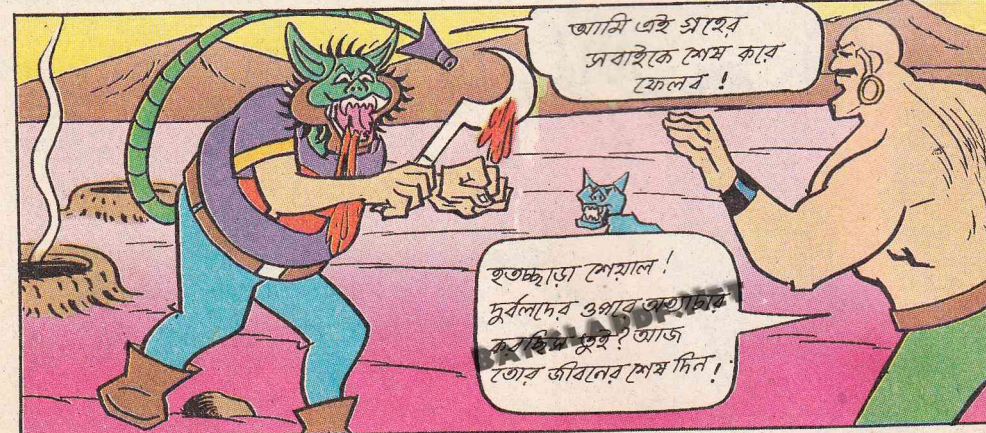 আমি এই গ্রহের
সবাইকে শেষ করে
ফেলব !
হতচ্ছাড়া শেয়াল !
দুর্বলদের ওপরে অত্যাচার
করছিস তুই ? আজ
তোর জীবনের শেষ দিন !
BANGLAPDF.NET